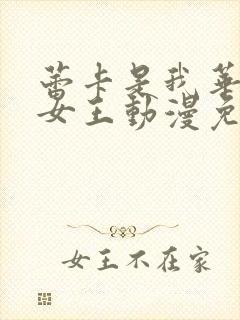 蕾卡是我華
女王動漫免
女王不在家